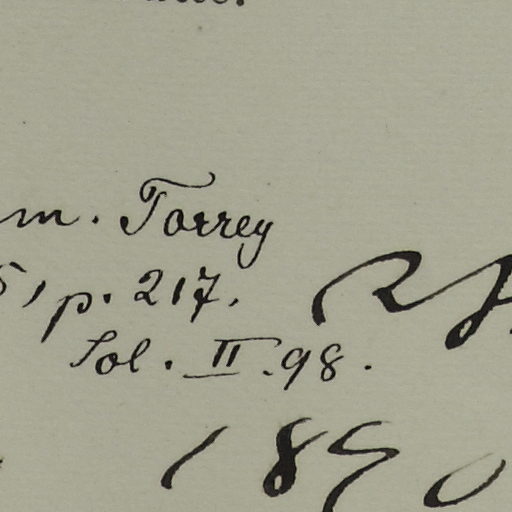 m. Torrey
5, p. 217.
Sol. II. 98.
1890